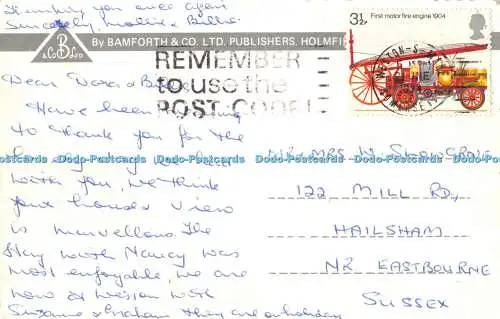 Thanking you once again
Sincerely, Mollie &
B & CO LTD
By BAMFORTH & CO. LTD. PUBLISHERS, HOLMFI
3½P First motor fire engine 1904
REMEMBER
to use the
POST CODE!
Dear Dora &
Have been
to thank you for the
day
with you, we think
your house & view
is marvellous. The
stay with Nancy was
most enjoyable, we are
now at Weston with
Suzanne & Graham they are on holiday
MR & MRS W.
122 MILL RD,
HAILSHAM
NR EASTBOURNE
SUSSEX
Dodo-Postcards Dodo-Postcards Dodo-Postcards Dodo-Postcards Dodo-Postcards